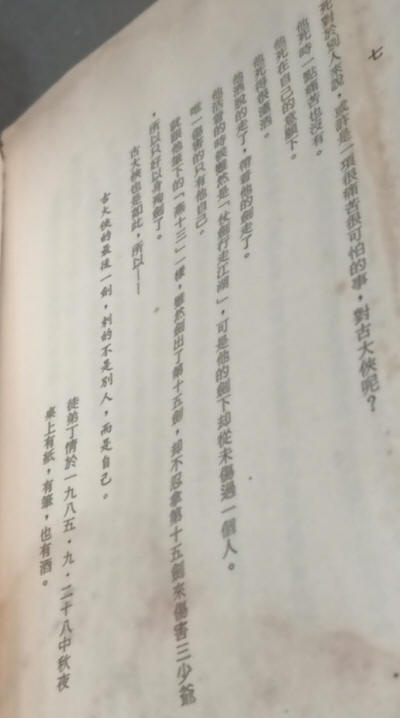 七
死對於別人來說，或許是一項很痛苦很可怕的事，對古大俠呢？
他死時一點痛苦也沒有。
他死在自己的意願下。
他死得很瀟洒。
他洒脫的走了，帶着他的劍走了。
他活着的時候雖然是「仗劍行走江湖」，可是他的劍下却從未傷過一個人。
唯一傷害的只有他自己。
就跟他筆下的「燕十三」一樣，雖然創出了第十五劍，却不忍拿第十五劍來傷害三少爺
，所以只好以身殉劍了。
古大俠也是如此，所以——
古大俠的最後一劍，刺的不是別人，而是自己。
徒弟丁情於一九八五．九．二十八中秋夜
桌上有紙，有筆，也有酒。